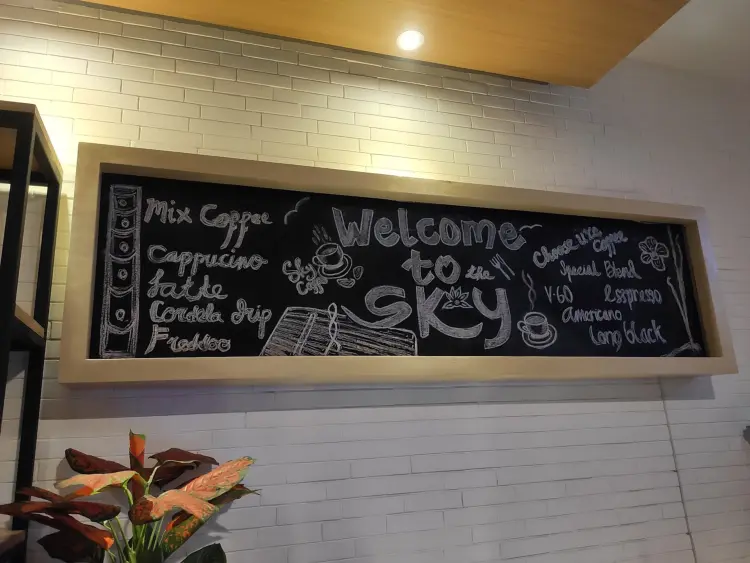 Mix Coffee
Cappucino
Latte
Cordela Drip
Freddoo
Sky
Caff
Welcome
to the
SKY
Coffee
Special Blend
V-60 Esspresso
Americano
Long black